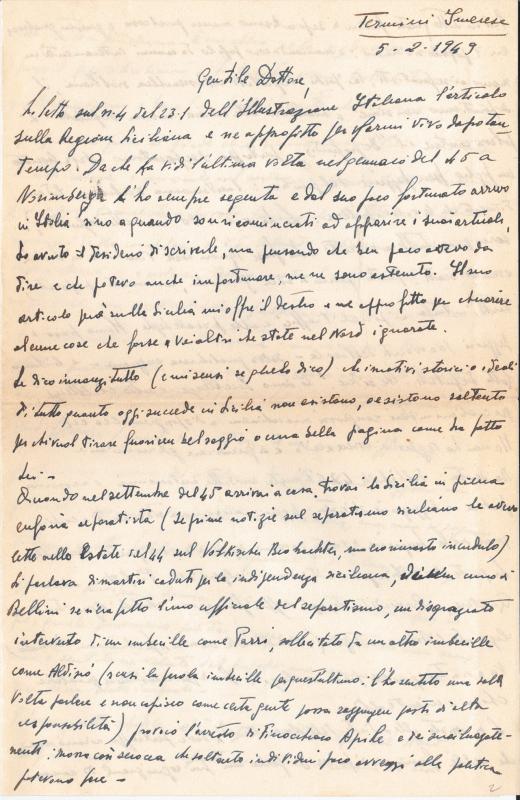 Termini Imerese
5-2-1949
Gentile Dottore,
Ho letto sul n. 4 del 23.1 dell'Illustrazione Italiana l'articolo
sulla Regione Siciliana e ne approfitto per farmi vivo dopo tan
tempo. Da che l'ultima volta nel gennaio del 45 a
Norimberga l'ho sempre seguita e dal suo poco fortunato arrivo
in Italia sino a quando son ricominciati ad apparire i suoi articoli,
ho avuto il desiderio di scriverle, ma pensando che ben poco avevo da
dire e che potevo anche importunare, me ne sono astenuto. Il suo
articolo però sulla Sicilia mi offre il destro e ne approfitto per chiarire
alcune cose che forse a voialtri che state nel Nord ignorate.
Le dico innanzitutto (e mi scusi se glielo dico) che i motivi storici o ideali
di tutto quanto oggi succede in Sicilia non esistono, o esistono soltanto
per chi vuol tirare fuori un bel saggio o una bella pagina come ha fatto
Lei -
Quando nel settembre del 45 arrivai a casa, trovai la Sicilia in piena
euforia separatista (le prime notizie sul separatismo siciliano le avevo
lette nello Estate del 44 sul Volkischer Beobachter, ma ero rimasto incredulo)
si parlava di martiri caduti per la indipendenza siciliana, un inno di
Bellini se n'era fatto l'inno ufficiale del separatismo, un disgraziato
intervento di un imbecille come Parri, sollecitato da un altro imbecille
come Aldisio (scusi la parola imbecille per quest'ultimo: l'ho sentito una sola
volta parlare e non capisco come certa gente possa raggiungere posti di alta
responsabilità) provocò l'arresto di Finocchiaro Aprile e dei suoi luogote-
nenti: mossa così sciocca che soltanto individui poco avvezzi alla politica
potevano fare -
2